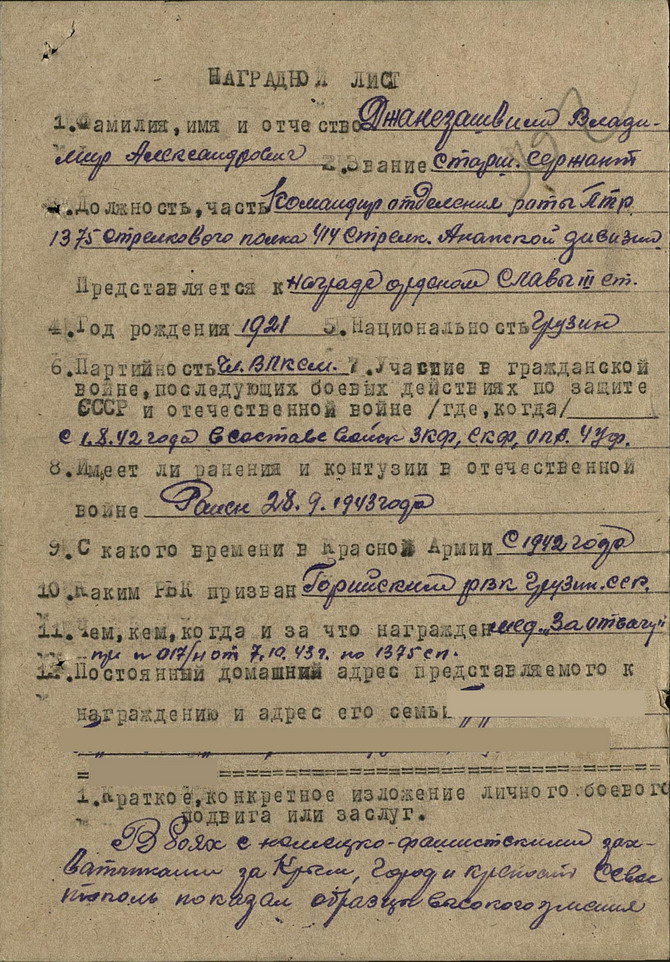 НАГРАДНОЙ ЛИСТ
1. Фамилия, имя и отчество Джанезашвили Влади-
мир Александрович 2. Звание старш. сержант
3. Должность, часть Командир отделения роты Птр
1375 стрелкового полка 414 Стрелк. Анапской дивизии
Представляется к награде орденом Славы III ст.
4. Год рождения 1921 5. Национальность Грузин
6. Партийность Чл. ВЛКСМ. 7. Участие в гражданской
войне, последующих боевых действиях по защите
СССР и отечественной войне /где, когда/
с 1.8.42 года в составе войск ЗКФ, СКФ, ОПА. 4 УФ.
8. Имеет ли ранения и контузии в отечественной
войне Ранен 28.9.1943 года
9. С какого времени в Красной Армии с 1942 года
10. Каким РВК призван Горийским рвк Грузин. сср.
11. Чем, кем, когда и за что награжден мед. "За отвагу"
пр N 017/н от 7.10.43 г. по 1375 сп.
12. Постоянный домашний адрес представляемого к
награждению и адрес его семьи
1. Краткое, конкретное изложение личного боевого
подвига или заслуг.
В боях с немецко-фашистскими зах-
ватчиками за Крым, Город и крепость Севас
тополь показал образцы высокого умения